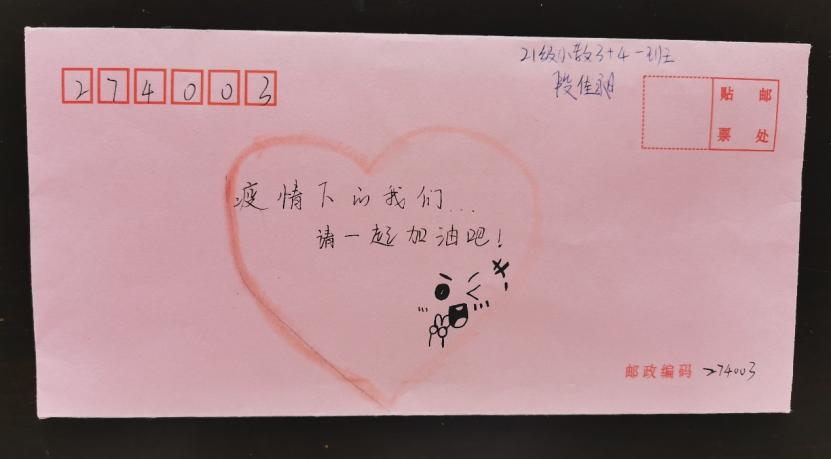 21级小教3+4一班
段佳
274003
贴 邮
票 处
疫情下的我们...
请一起加油吧!
邮政编码 274003